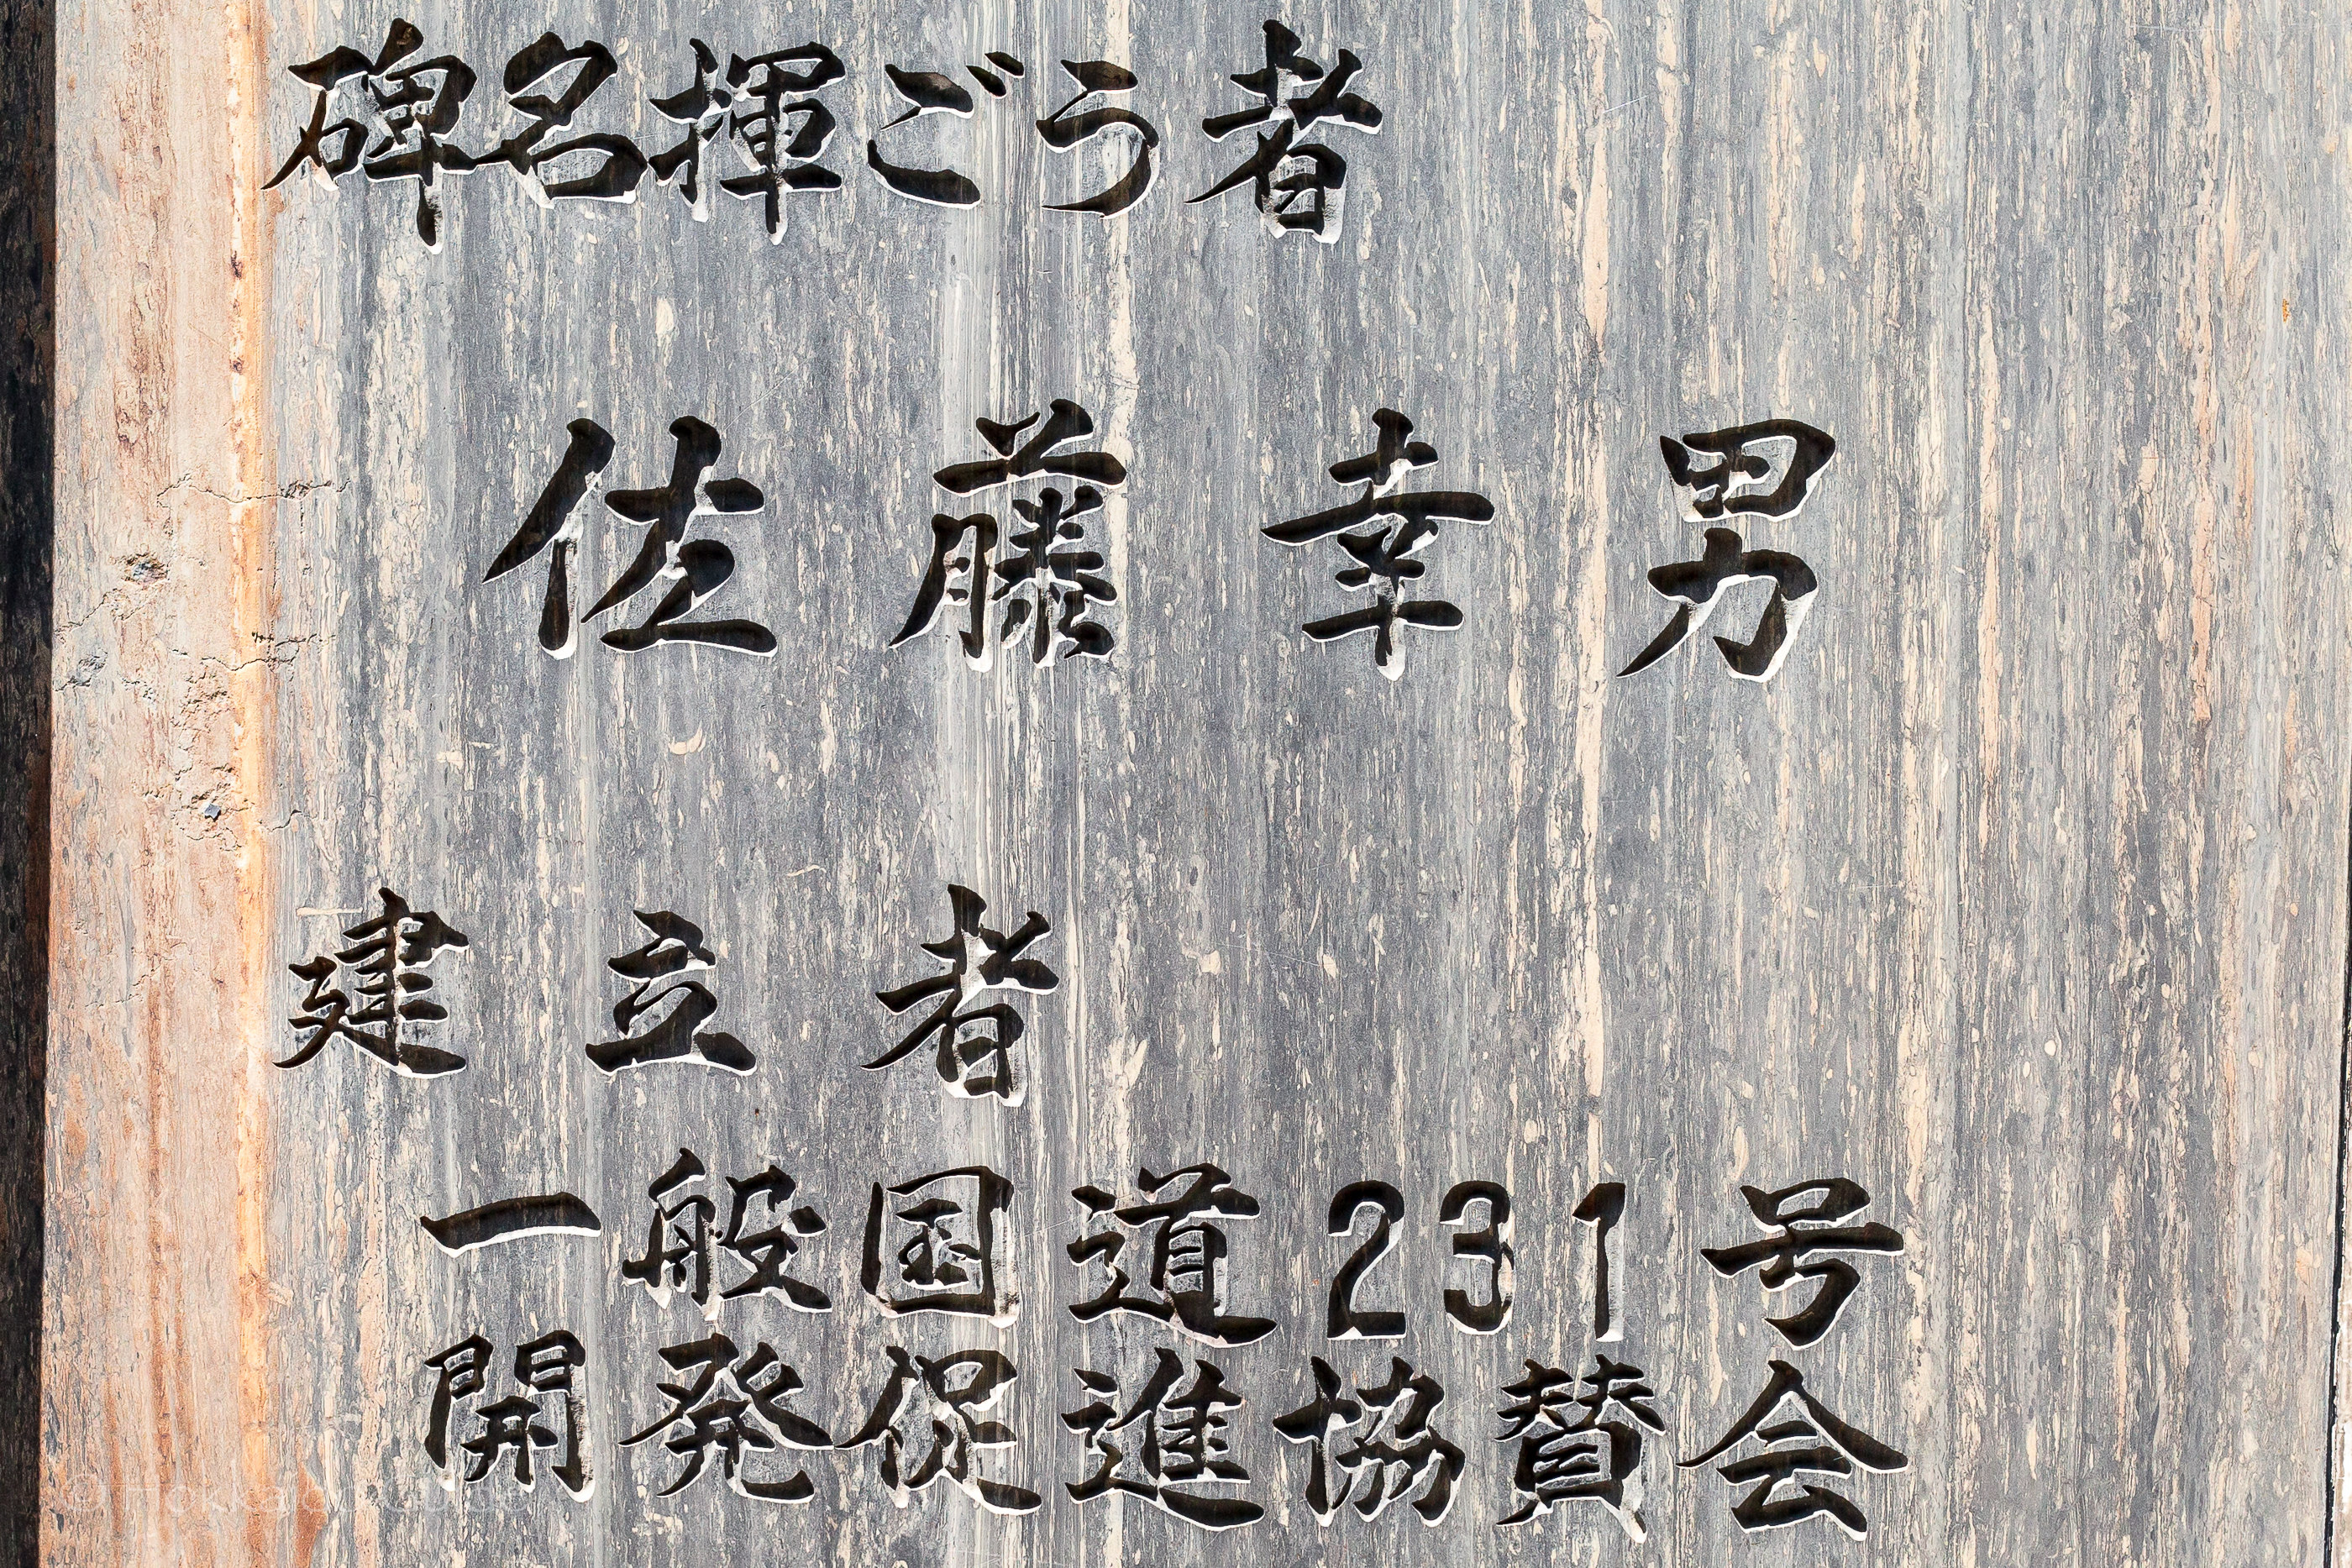 碑名揮ごう者
佐藤幸男
建立者
一般国道231号
開発促進協賛会